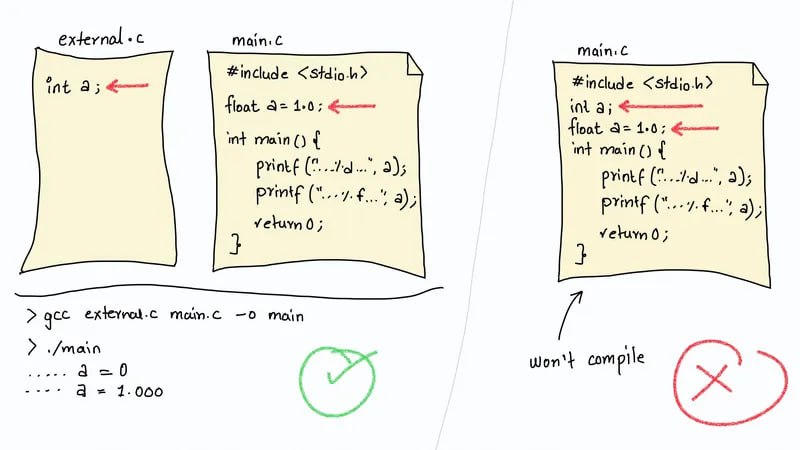 external.c
int a;
main.c
#include <stdio.h>
float a = 1.0;
int main() {
printf("...%d...", a);
printf("...%.f...", a);
return 0;
}
> gcc external.c main.c -o main
> ./main
..... a = 0
.... a = 1.000
main.c
#include <stdio.h>
int a;
float a = 1.0;
int main() {
printf("...%d...", a);
printf("...%.f...", a);
return 0;
}
won't compile